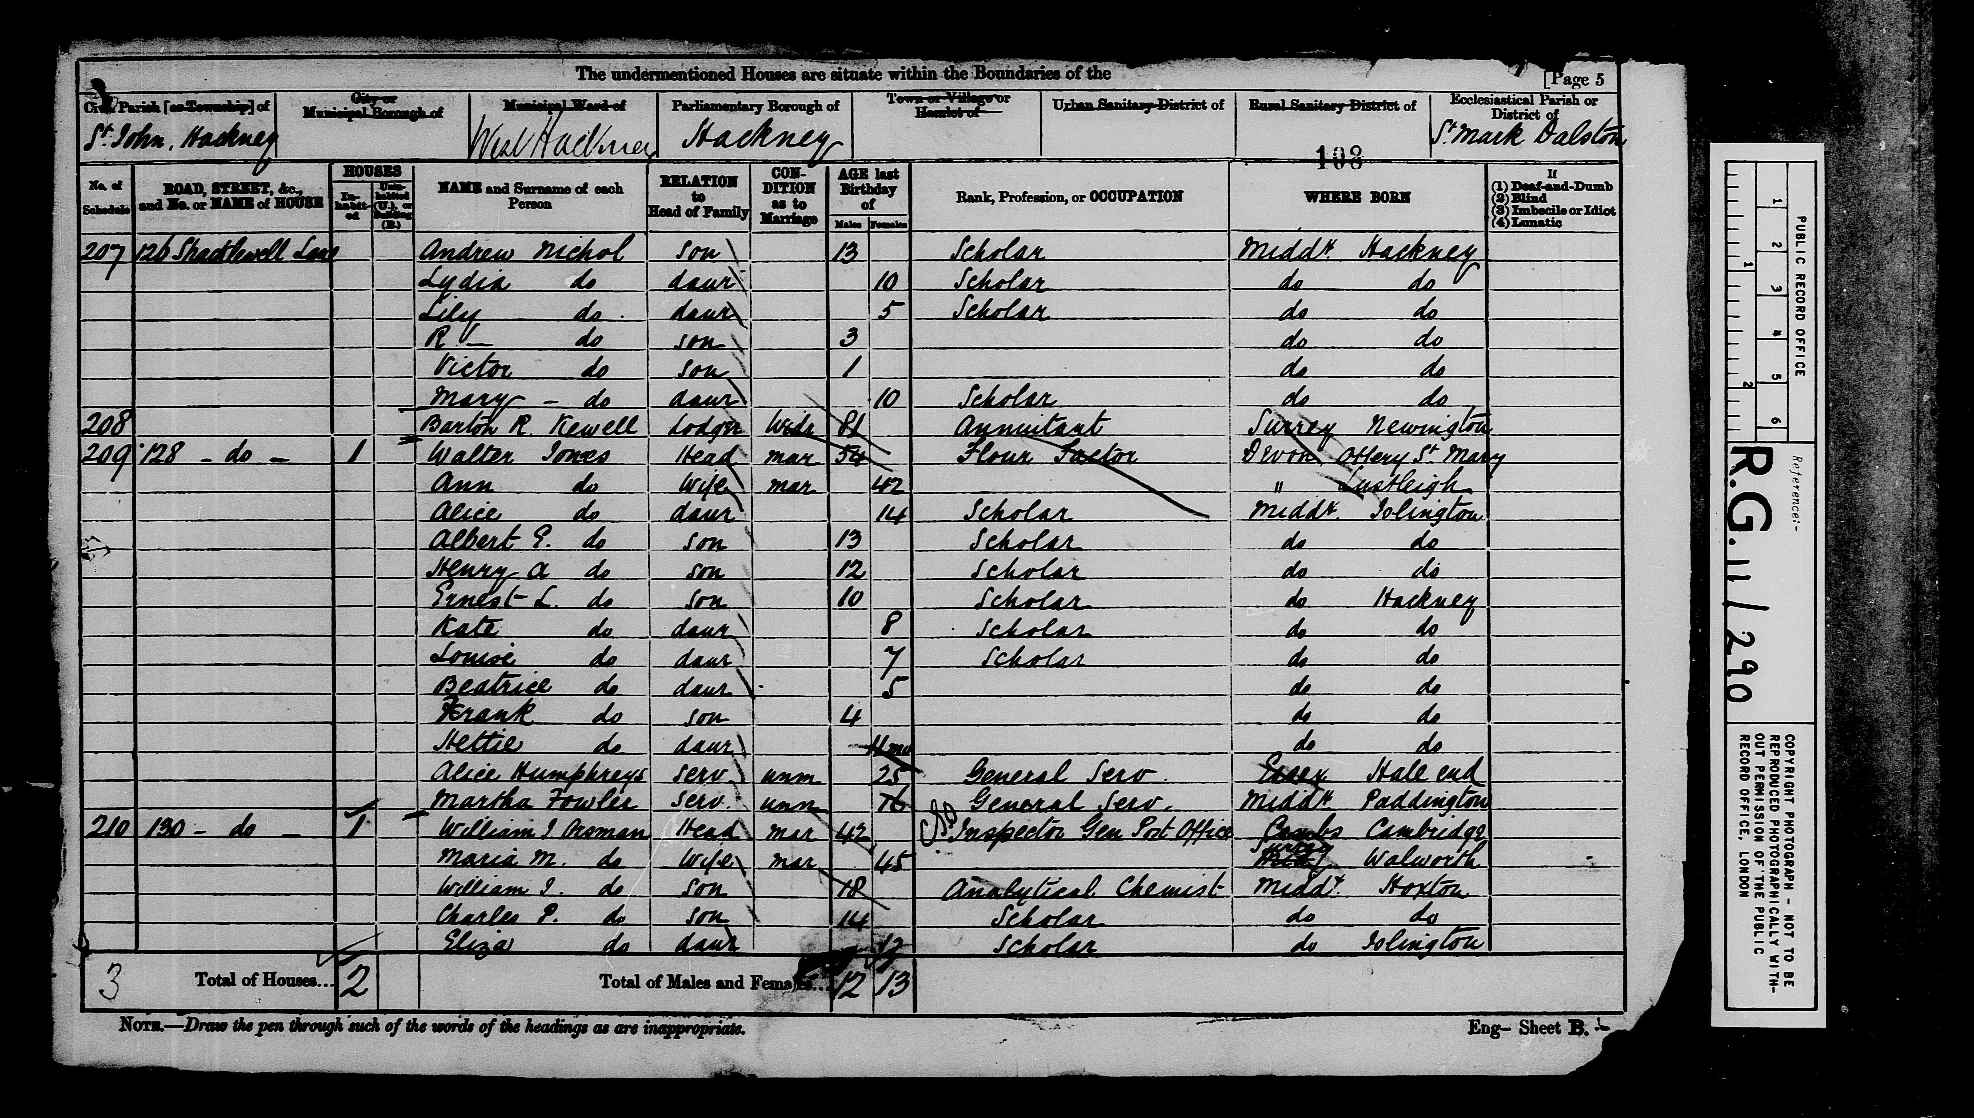 The undermentioned Houses are situate within the Boundaries of the
[Page 5
Civil Parish [or Township] of
City or Municipal Borough of
Municipal Ward of
Parliamentary Borough of
Town or Village or Hamlet of
Urban Sanitary District of
Rural Sanitary District of
Ecclesiastical Parish or District of
St. John, Hackney
West Hackney
Hackney
St Mark Dalston
No. of Schedule
ROAD, STREET, &c., and No. or NAME of HOUSE
HOUSES
Inhabited
Uninhabited (U.), or Building (B.)
NAME and Surname of each Person
RELATION to Head of Family
CONDITION as to Marriage
AGE last Birthday of
Males
Females
Rank, Profession, or OCCUPATION
WHERE BORN
If
(1) Deaf-and-Dumb
(2) Blind
(3) Imbecile or Idiot
(4) Lunatic
207 126 Shacklewell Lane Andrew Nichol son 13 Scholar Middx. Hackney
Lydia do daur 10 Scholar do do
Lily do daur 5 Scholar do do
R. — do son 3 do do
Victor do son 1 do do
Mary - do daur 10 Scholar do do
208 Barton R. Kewell Lodger Widr 81 Annuitant Surrey Newington
209 128 - do - 1 Walter Jones Head mar 54 Flour Factor Devon Ottery St. Mary
Ann do Wife mar 42 " Lustleigh
Alice do daur 14 Scholar Middx. Islington
Albert E. do son 13 Scholar do do
Henry A do son 12 Scholar do do
Ernest L. do son 10 Scholar do Hackney
Kate do daur 8 Scholar do do
Louise do daur 7 Scholar do do
Beatrice do daur 5 do do
Frank do son 4 do do
Hettie do daur 11 mo do do
Alice Humphreys serv unm 25 General Serv. Essex Hale end
Martha Fowler serv. unm 16 General Serv. Middx Paddington
210 130 - do - 1 William J. Orsman Head mar 42 Inspector Gen Post Office Cambs Cambridge
Maria M. do Wife mar 45 Surrey Walworth
William J. do son 18 Analytical Chemist Middx. Hoxton
Charles P. do son 14 Scholar do do
Eliza do daur 12 Scholar do Islington
3 Total of Houses... 2 Total of Males and Females... 12 13
NOTE.—Draw the pen through such of the words of the headings as are inappropriate.
Eng- Sheet B.
PUBLIC RECORD OFFICE
1 2 3 4 5 6
1 2
Reference:-
R.G. 11/290
COPYRIGHT PHOTOGRAPH - NOT TO BE
REPRODUCED PHOTOGRAPHICALLY WITH-
OUT PERMISSION OF THE PUBLIC
RECORD OFFICE, LONDON